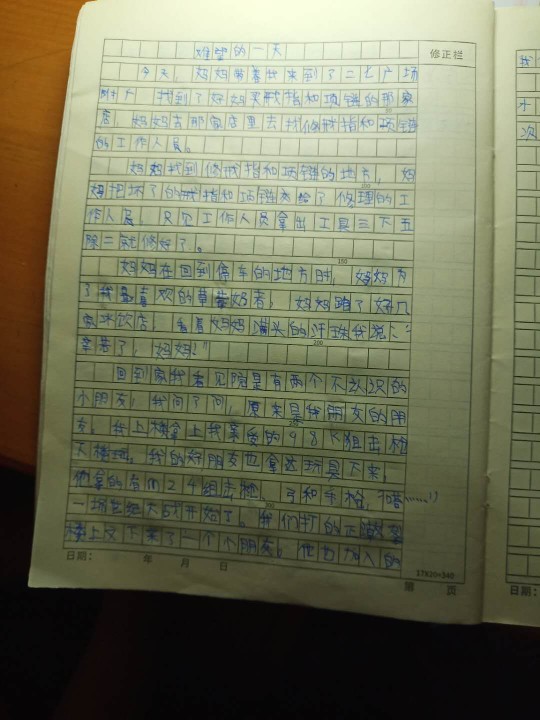 难望的一天
修正栏
今天，妈妈带着我来到了二七广场
附厂 找到了妈妈买戒指和项链的那家
店，妈妈去那家店里去找修戒指和项链
的工作人员。
妈妈找到修戒指和项链的地方，妈
妈把坏了的戒指和项链交给了修理的工
作人员，只见工作人员拿出工具三下五
除二就修好了。
妈妈在回到停车的地方时，妈妈为
了我最喜欢的草莓奶昔，妈妈跑了好几
家冰饮店，看着妈妈满头的汗珠我说：“
辛苦了，妈妈！”
回到家我看见院里有两个不认识的
小朋友，我问了问，原来是我朋友的朋
友，我上楼拿上我亲爱的98K狙击枪
下楼玩，我的好朋友也拿这玩具下来，
他拿的有M24狙击枪、弓和手枪，“嗒……”
一场 大战开始了。我们打的正激
楼上又下来了一个小朋友，他也加入的
100
200
300
日期： 年 月 日
17X20=340
第 页
我
水
次
日期：